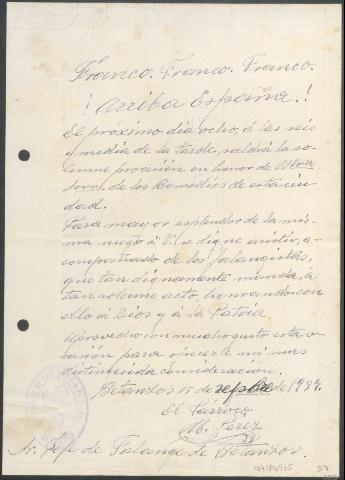 Franco. Franco. Franco.
¡Arriba España!!
El próximo día ocho, á las seis
y media de la tarde, saldrá la so-
lemne procesión en honor de Ntra
Sora. de los Remedios de esta ciu-
dad.
Para mayor esplendor de la mis-
ma ruego á V. se digne asistir, a-
compañado de los falangistas,
que tan dignamente manda, á
tan solemne acto, honrando con
ello á Dios y á la Patria
Aprovecho con mucho gusto esta o-
casión para ofrecerle mi más
distinguida consideración.
Betanzos 5 de sepbre de 1937.
El Párroco
M. Perez
Sr. Jefe de Falange de Betanzos.
37